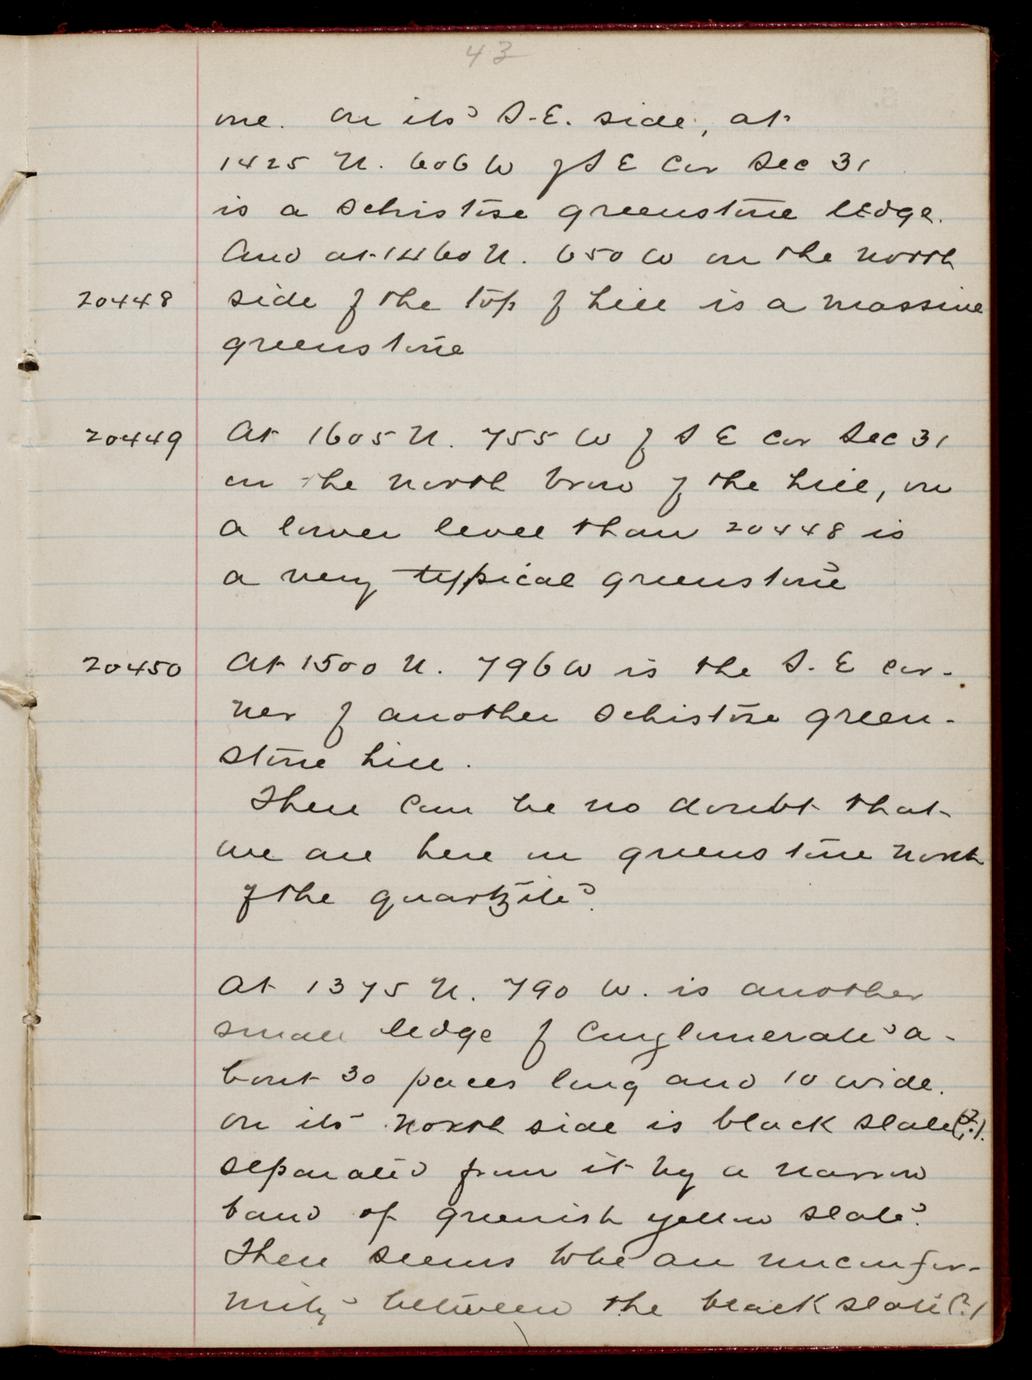 43
one. On its S.E. side, at
1425 N. 606 W of S E Cor Sec 31
is a schistose greenstone ledge.
And at 1460 N. 650 W on the north
20448 side of the top of hill is a massive
greenstone
20449 At 1605 N. 755 W of S E Cor Sec 31
on the north brow of the hill, on
a lower level than 20448 is
a very typical greenstone
20450 At 1500 N. 796 W is the S. E cor-
ner of another schistose green-
stone hill.
There can be no doubt that
we are here in greenstone north
of the quartzite.
At 1375 N. 790 W. is another
small ledge of Conglomerate a-
bout 30 paces long and 10 wide.
On its north side is black slate (?).
separated from it by a narrow
band of greenish yellow slate.
There seems to be an unconfor-
mity between the black slate (?)